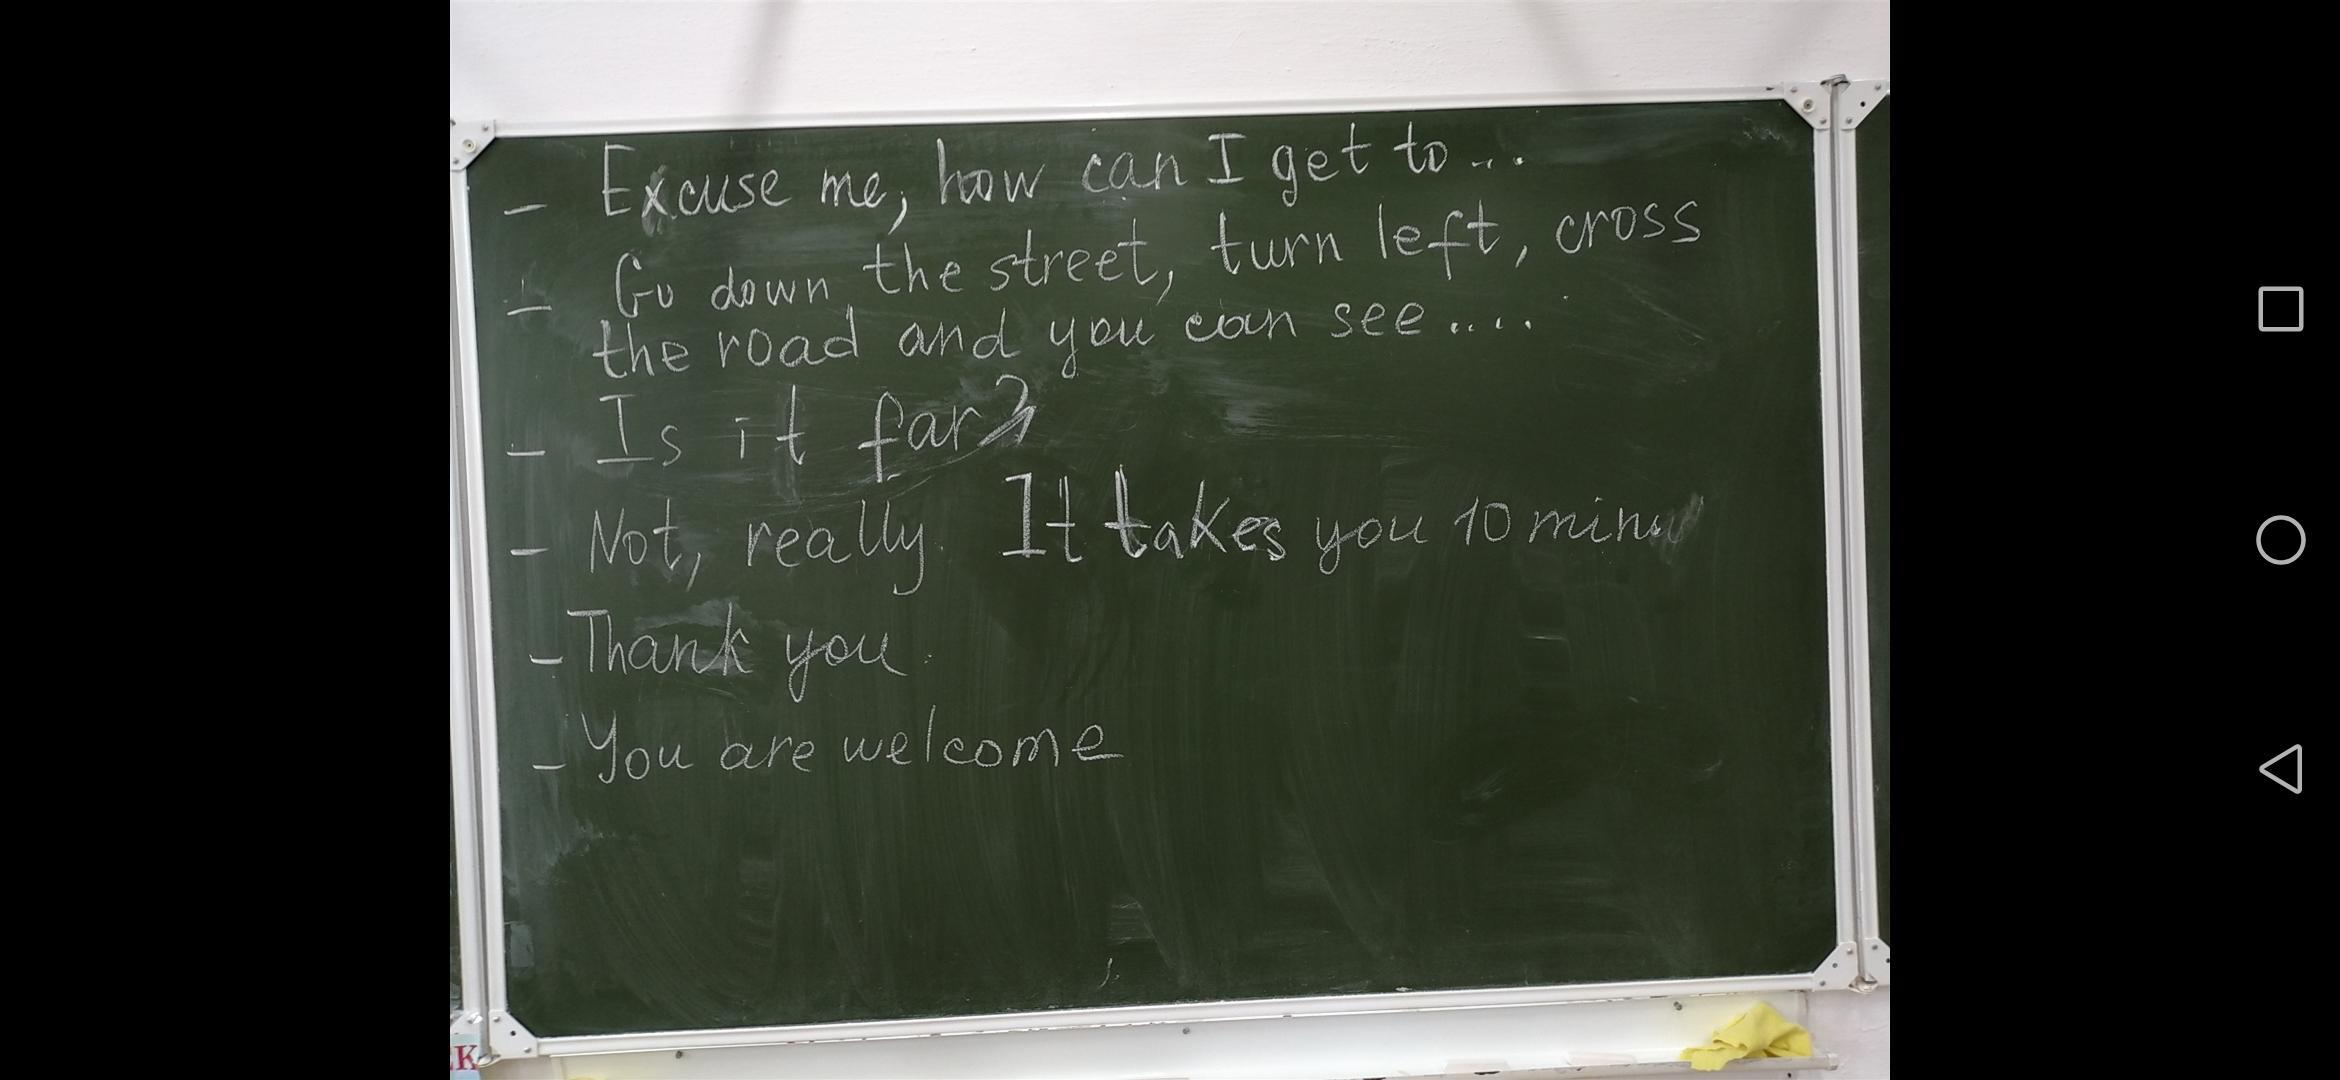 - Excuse me, how can I get to...
- Go down the street, turn left, cross
the road and you can see....
- Is it far?
- Not, really. It takes you 10
- Thank you.
- You are welcome